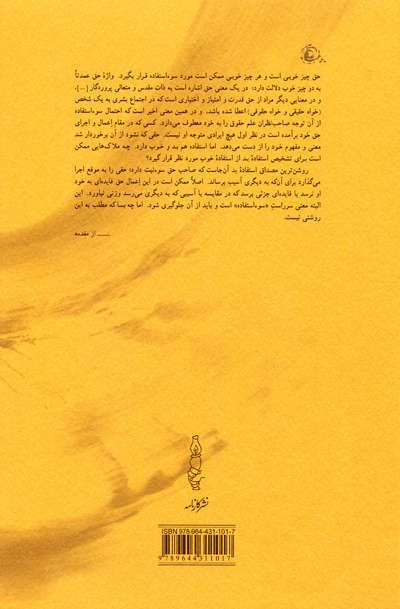 حق چیز خوبی است و هر چیز خوبی ممکن است مورد سوءاستفاده قرار بگیرد. واژهٔ حق عمدتاً
به دو چیز خوب دلالت دارد: در یک معنی حق اشاره است به ذات مقدس و متعالی پروردگار [...]،
و در معنایی دیگر مراد از حق قدرت و امتیاز و اختیاری است که در اجتماع بشری به یک شخص
(خواه حقیقی و خواه حقوقی) اعطا شده باشد. و در همین معنی اخیر است که احتمال سوءاستفاده
از آن توجه صاحب‌نظران علم حقوق را به خود معطوف می‌دارد. کسی که در مقام اعمال و اجرای
حق خود برآمده است در نظر اول هیچ ایرادی متوجه او نیست. حقی که نشود از آن برخوردار شد
معنی و مفهوم خود را از دست می‌دهد. اما استفاده هم بد و خوب دارد. چه ملاک‌هایی ممکن
است برای تشخیص استفادهٔ بد از استفادهٔ خوب مورد نظر قرار گیرد؟
روشن‌ترین مصداق استفادهٔ بد آن‌جاست که صاحب حق سوءنیت دارد؛ حقی را به موقع اجرا
می‌گذارد برای آن‌که به دیگری آسیب برساند. اصلاً ممکن است در این اِعمال حق فایده‌ای به خود
او نرسد یا فایده‌ای جزئی برسد که در مقایسه با آسیبی که به دیگری می‌رسد وزنی نیاورد. این
البته معنی سرراست «سوءاستفاده» است و باید از آن جلوگیری شود. اما چه بسا که مطلب به این
روشنی نیست.
از مقدمه
نشر کارنامه
ISBN 978-964-431-101-7
9789644311017